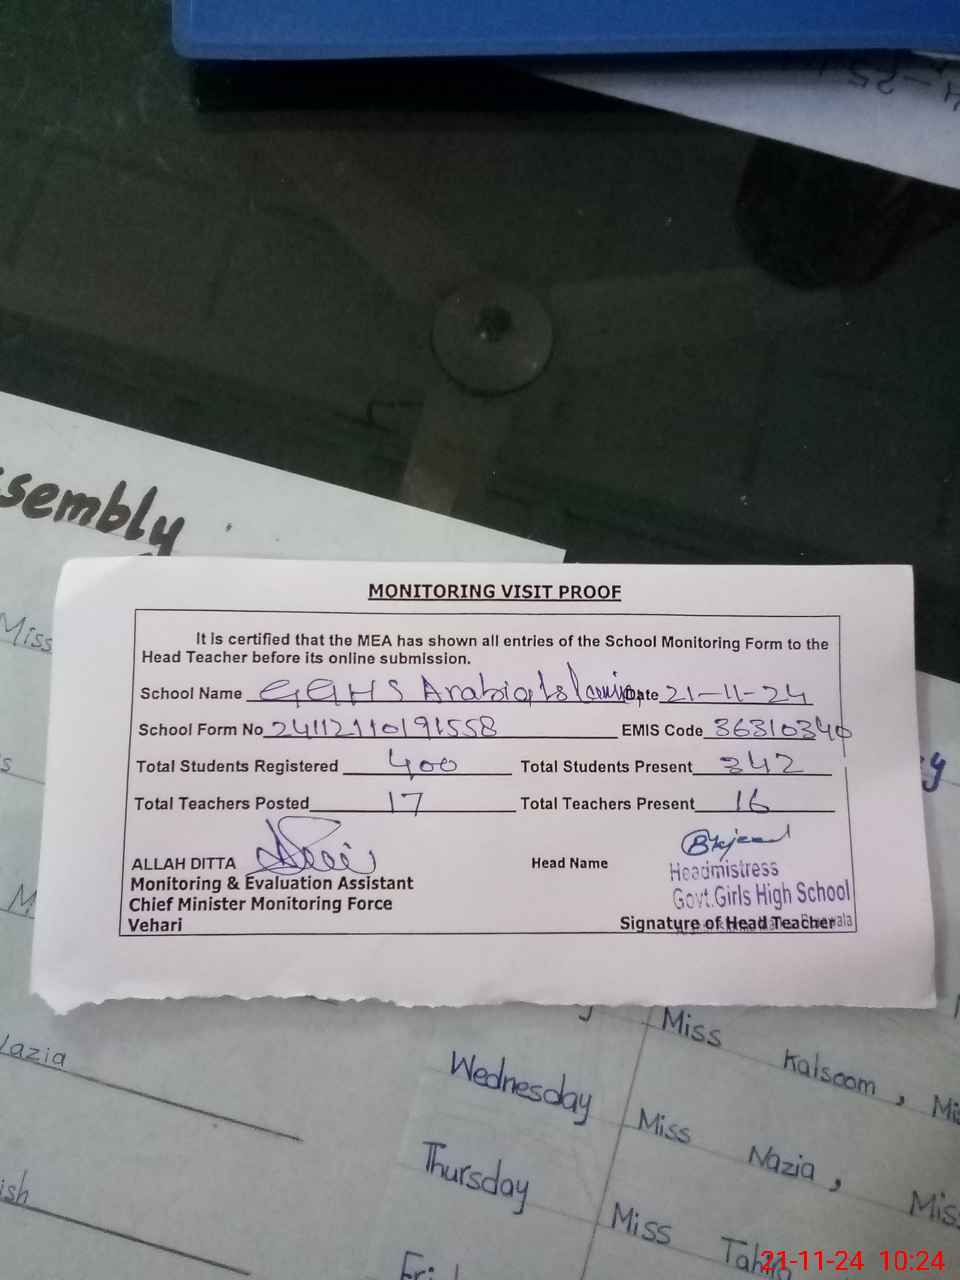 ssembly
Miss
MONITORING VISIT PROOF
It is certified that the MEA has shown all entries of the School Monitoring Form to the
Head Teacher before its online submission.
School Name GGHS Arabia Islamia Date 21-11-24
School Form No 24112110191558 EMIS Code 36310340
Total Students Registered 400 Total Students Present 342
Total Teachers Posted 17 Total Teachers Present 16
ALLAH DITTA Head Name
Headmistress
Monitoring & Evaluation Assistant
Govt.Girls High School
Chief Minister Monitoring Force
Vehari Signature of Head Teacher
Miss Kalsoom,
Wednesday Miss Nazia, Miss
Thursday Miss
21-11-24 10:24